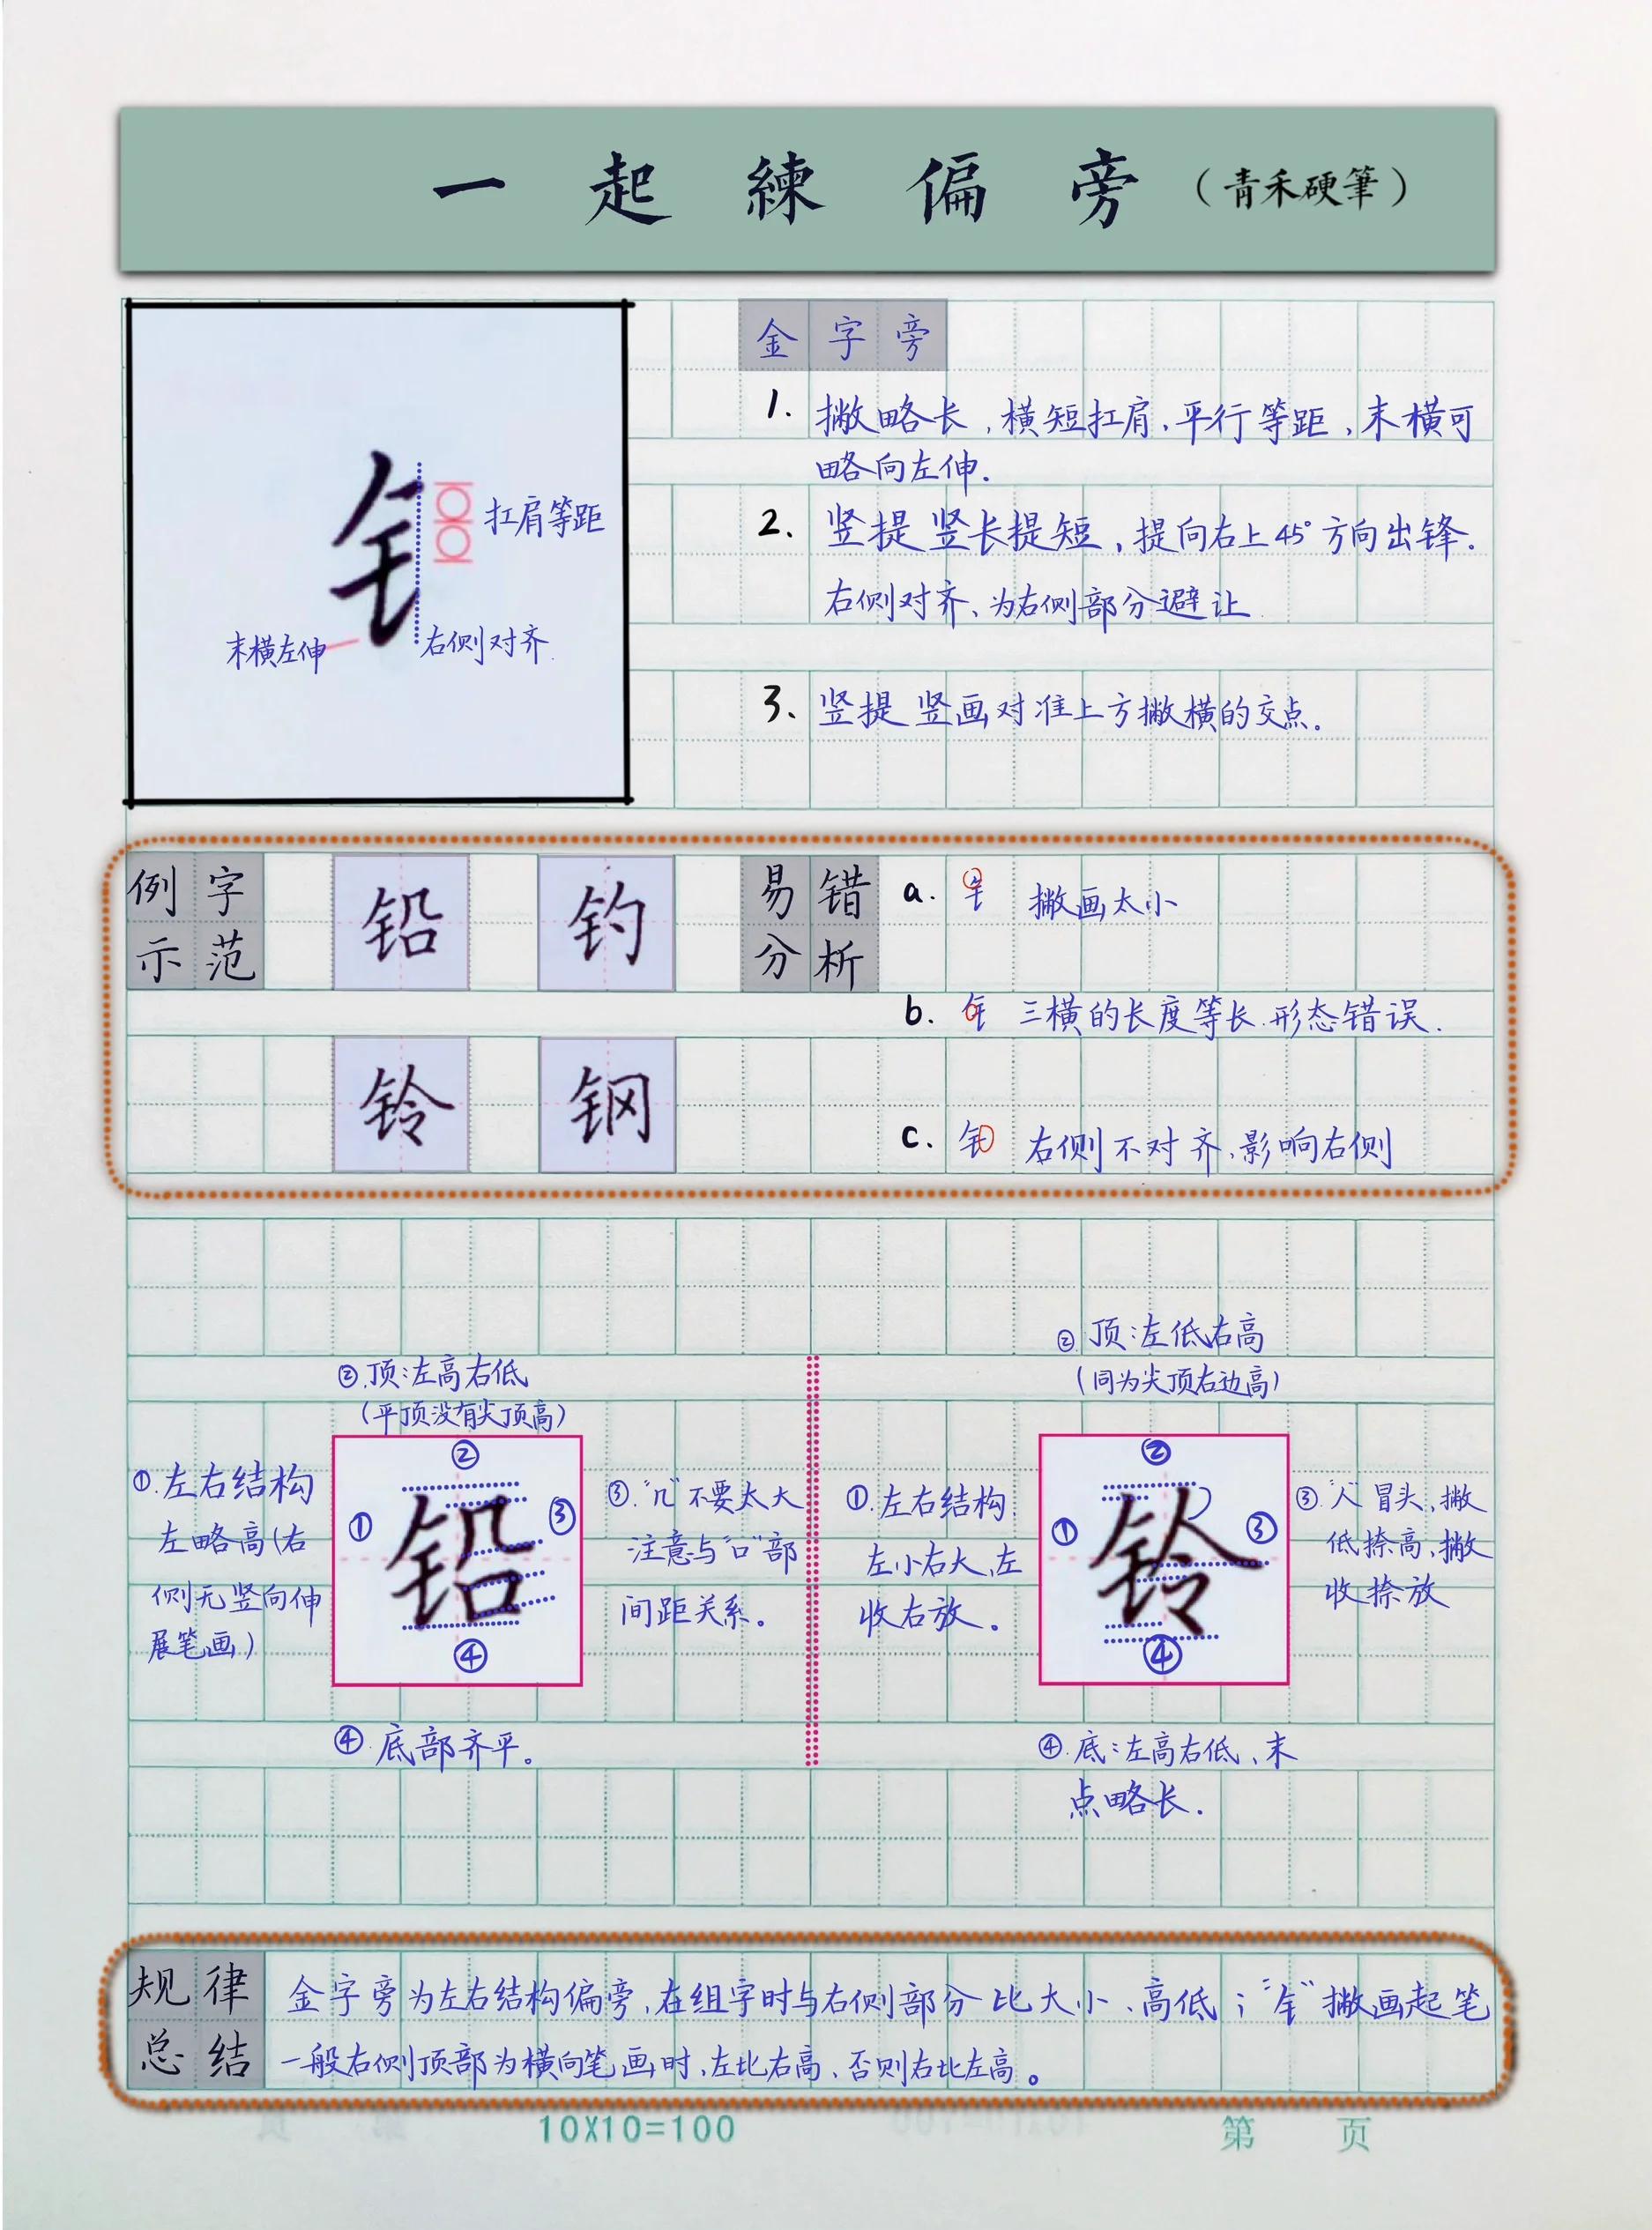 一起練偏旁（青禾硬筆）
金字旁
1. 撇略长，横短扛肩、平行等距，末横可
略向左伸.
2. 竖提 竖长提短，提向右上45°方向出锋.
右侧对齐、为右侧部分避让
3. 竖提 竖画对准上方撇横的交点。
钅
扛肩等距
末横左伸
右侧对齐.
例字
示范
铅 钓
铃 钢
易错
分析
a. 钅 撇画太小
b. 钅 三横的长度等长.形态错误.
c. 钅 右侧不对齐、影响右侧
②.顶:左高右低
(平顶没有尖顶高)
①.左右结构
左略高(右
侧无竖向伸
展笔画)
②
①
③
铅
④
③."几"不要太大
注意与"口"部
间距关系。
④.底部齐平。
②.顶:左低右高
(同为尖顶右边高)
①.左右结构.
左小右大、左
收右放。
②
①
③
铃
④
③."人"冒头、撇
低捺高、撇
收捺放
④.底:左高右低、末
点略长.
规律
总结
金字旁为左右结构偏旁、在组字时与右侧部分比大小、高低；"钅"撇画起笔
一般右侧顶部为横向笔画时、左比右高、否则右比左高。
10X10=100
第 页